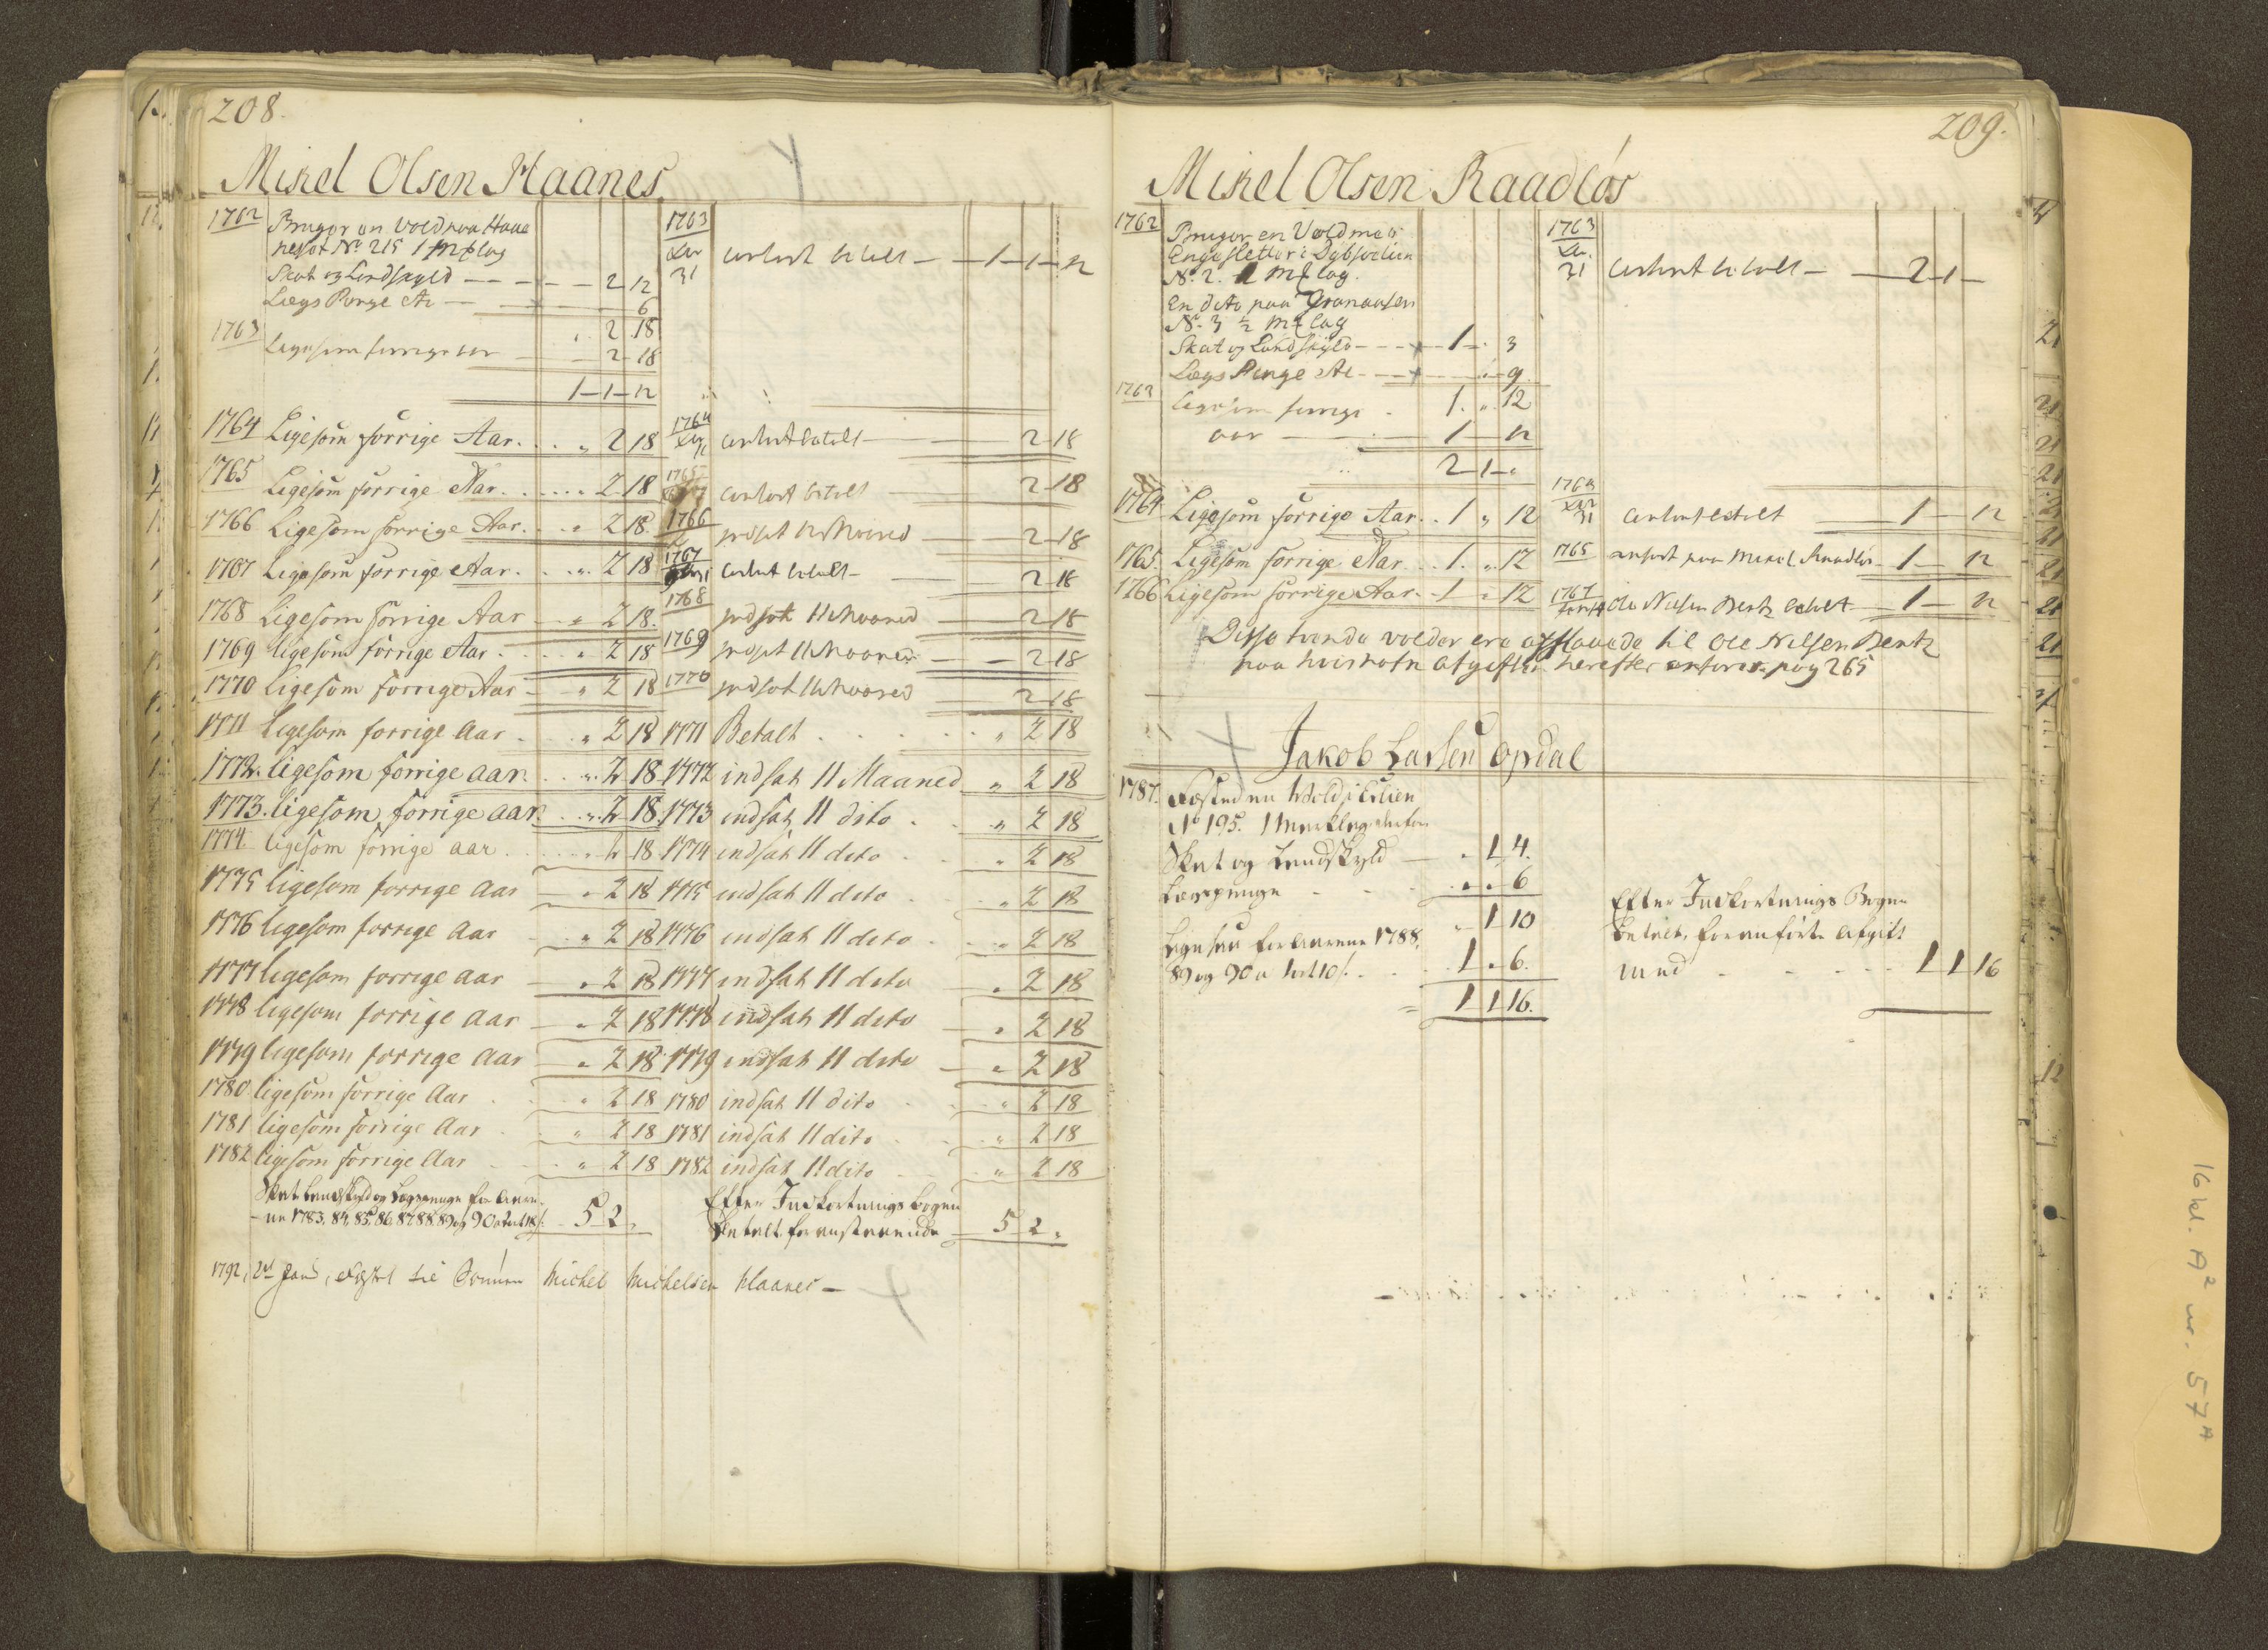 208.
Mikel Olsen Haanes
1762 Bruger en Vold paa Haa
neset No 215 1 mklag
Skat og Landskyld — 2 12
Lægs Penge Ar — 6
" 2 18
1763 Ligesom forrige aar — 2 18
1 — 1 — 12
1763
Xbr
31 contant betalt — 1 — 1 — 12
1764 Ligesom forrige Aar . . . " 2 18 1764 Xbr contant betalt — 2 18
1765 Ligesom forrige Aar . . . . 2 18 1765 contant betalt 2 18
1766 Ligesom forrige Aar . . " 2 18 1766 indsat 11 Maaned — 2 18
1767 Ligesom forrige Aar . . " 2 18 1767 contant betalt — 2 18
1768 Ligesom forrige Aar — " 2 18. 1768 indsat 11 Maaned — 2 18
1769 ligesom forrige Aar . . " 2 18 1769 indsat 11 Maaned — 2 18
1770 ligesom forrige Aar — " 2 18 1770 indsat 11 Maaned 2 18
1771 ligesom forrige Aar . " 2 18 1771 Betalt . . . . " 2 18
1772. ligesom forrige aar. . . " 2 18 1772 indsat 11 Maaned " 2 18
1773. ligesom forrige aar. . . " 2 18. 1773 indsat 11 dito . . " 2 18
1774. ligesom forrige aar . . . " 2 18 1774 indsat 11 dito . . " 2 18
1775 ligesom forrige Aar — " 2 18 1775 indsat 11 dito . . " 2 18
1776 ligesom forrige Aar — " 2 18 1776 indsat 11 dito . . " 2 18
1777 ligesom forrige Aar — " 2 18 1777 indsat 11 dito — " 2 18
1778 ligesom forrige Aar — " 2 18 1778 indsat 11 dito — " 2 18
1779 ligesom forrige Aar — " 2 18 1779 indsat 11 dito — " 2 18
1780 ligesom forrige Aar . . " 2 18 1780 indsat 11 dito . . " 2 18
1781 ligesom forrige Aar . . " 2 18 1781 indsat 11 dito . . " 2 18
1782 ligesom forrige Aar . . " 2 18 1782 indsat 11 dito . . " 2 18
Skat Landskyld og Lægspenge for Aare-
ne 1783. 84. 85. 86. 87. 88. 89 og 90 a 2ort 18 s. 5 2 "
Efter Indkortnings bogen
betalt foranstaaende — 5 2 "
1792, Jan, til Sønnen Michel Michelsen Haanes —
209.
Mikel Olsen Raadløs
1762 Bruger en Vold med
Engesletter i Dybsodlien
No. 2. 1 mklag.
En dito paa Granaasen
No. 3 ½ mklag
Skat og Landskyld — 1 — " 3
Lægs Penge Ar — " — 9
1763 Ligesom forrige . 1. ". 12
aar — 1 — 12
2 — 1 — "
1763
Xbr.
31 contant betalt — 2 — 1 —
1764 Ligesom forrige Aar. . 1 " 12 1764 Xbr 31 contant betalt — 1 — 12
1765. Ligesom forrige Aar . . 1. ". 12 1765 anført paa Mikel Raadløs 1 — 12
1766 Ligesom forrige Aar. — 1 " 12 1767 Ole Nilsen Bentz betalt — 1 — 12
Disse tvende volder ere afstaaede til Ole Nilsen Bentz
paa hvis navn afgiften herefter anføres pag 265
Jakob Larsen Opdal
1787. Fæsted en Vold i Lilien
No 195. 1 Merklag derfor
Skat og Landskyld — " 1 4.
Lægspenge . . . " " 6
" 1 10
Ligesaa for Aarene 1788,
89 og 90 a 1ort 10 s. . . 1 " 6.
= 1 1 16.
Efter Indkortnings Bogen
betalt, foranførte Afgift
med . . . . 1 1 16
16 kl. A² nr. 57ᴬ